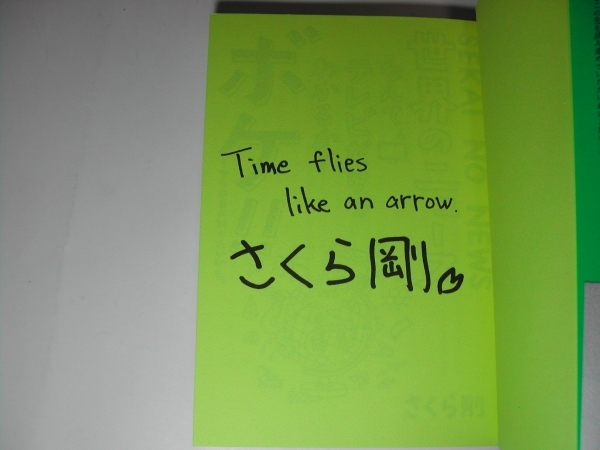 Time flies
like an arrow.
さくら剛
世界の
SEKAI NO NEWS
ボケ
さくら剛